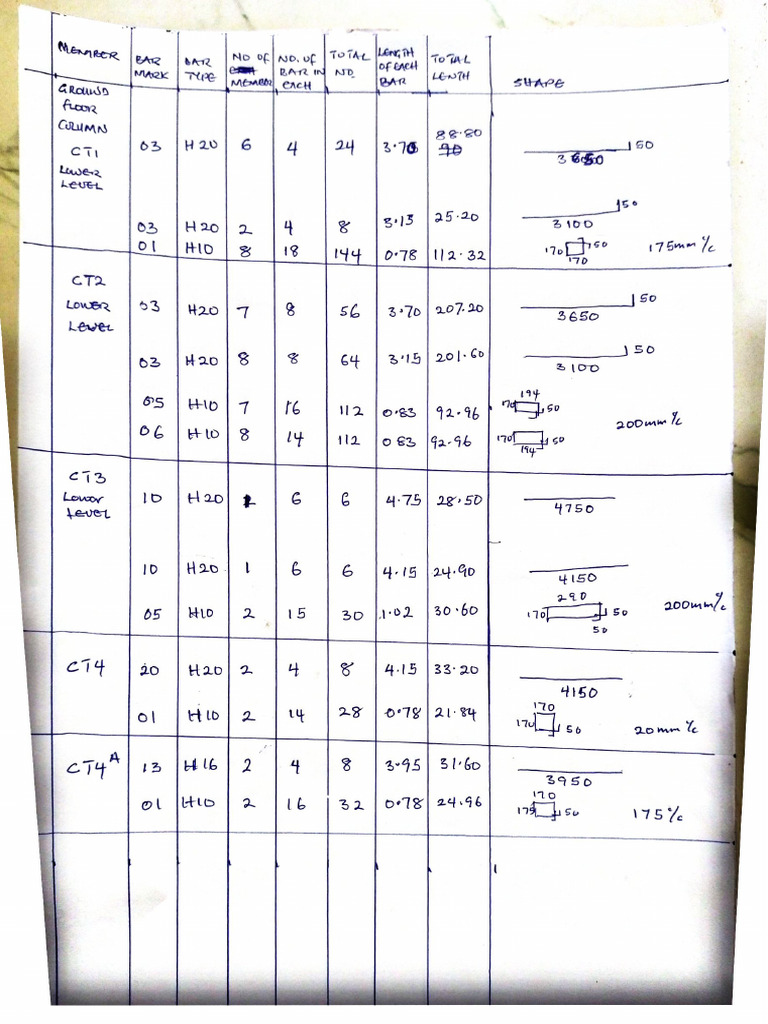 MEMBER BAR MARK BAR TYPE NO OF MEMBER NO. OF BAR IN EACH TOTAL NO. LENGTH OF EACH BAR TOTAL LENTH SHAPE
GROUND FLOOR COLUMN
CT1 LOWER LEVEL 03 H20 6 4 24 3.70 88.80 90 3650 50
03 H20 2 4 8 3.15 25.20 3100 50
01 H10 8 18 144 0.78 112.32 170 150 170 175mm c/c
CT2 LOWER LEVEL 03 H20 7 8 56 3.70 207.20 3650 50
03 H20 8 8 64 3.15 201.60 3100 50
05 H10 7 16 112 0.83 92.96 194 170 50 200mm c/c
06 H10 8 14 112 0.83 92.96 170 50 194
CT3 Lower LEVEL 10 H20 1 6 6 4.75 28.50 4750
10 H20 1 6 6 4.15 24.90 4150
05 H10 2 15 30 1.02 30.60 290 170 50 50 200mm c/c
CT4 20 H20 2 4 8 4.15 33.20 4150
01 H10 2 14 28 0.78 21.84 170 170 50 20mm c/c
CT4A 13 H16 2 4 8 3.95 31.60 3950
01 H10 2 16 32 0.78 24.96 170 175 50 175 c/c